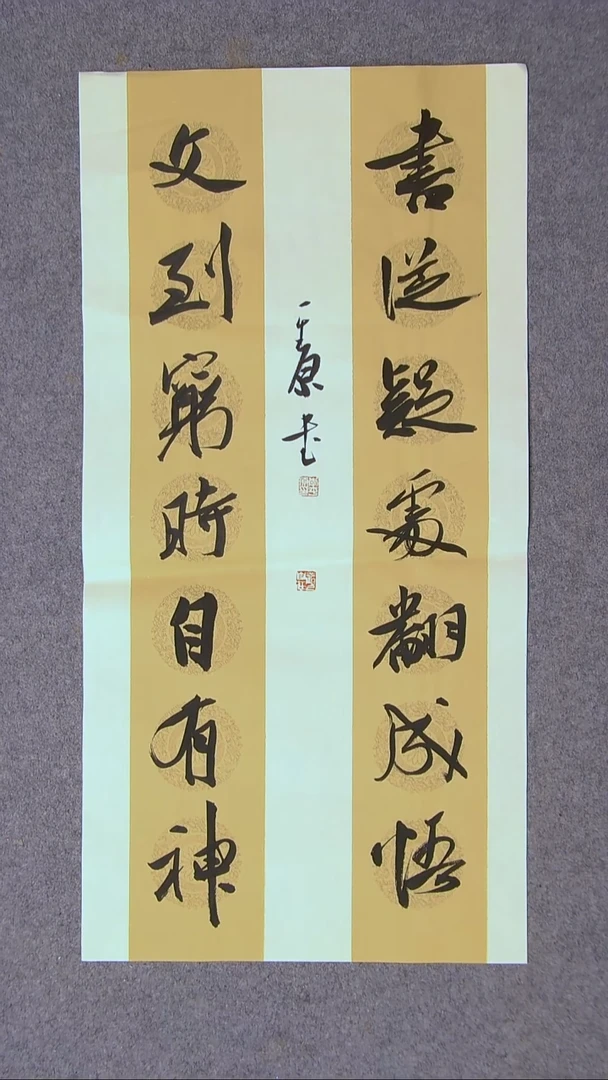 書從疑處翻成悟
文到窮時自有神
書